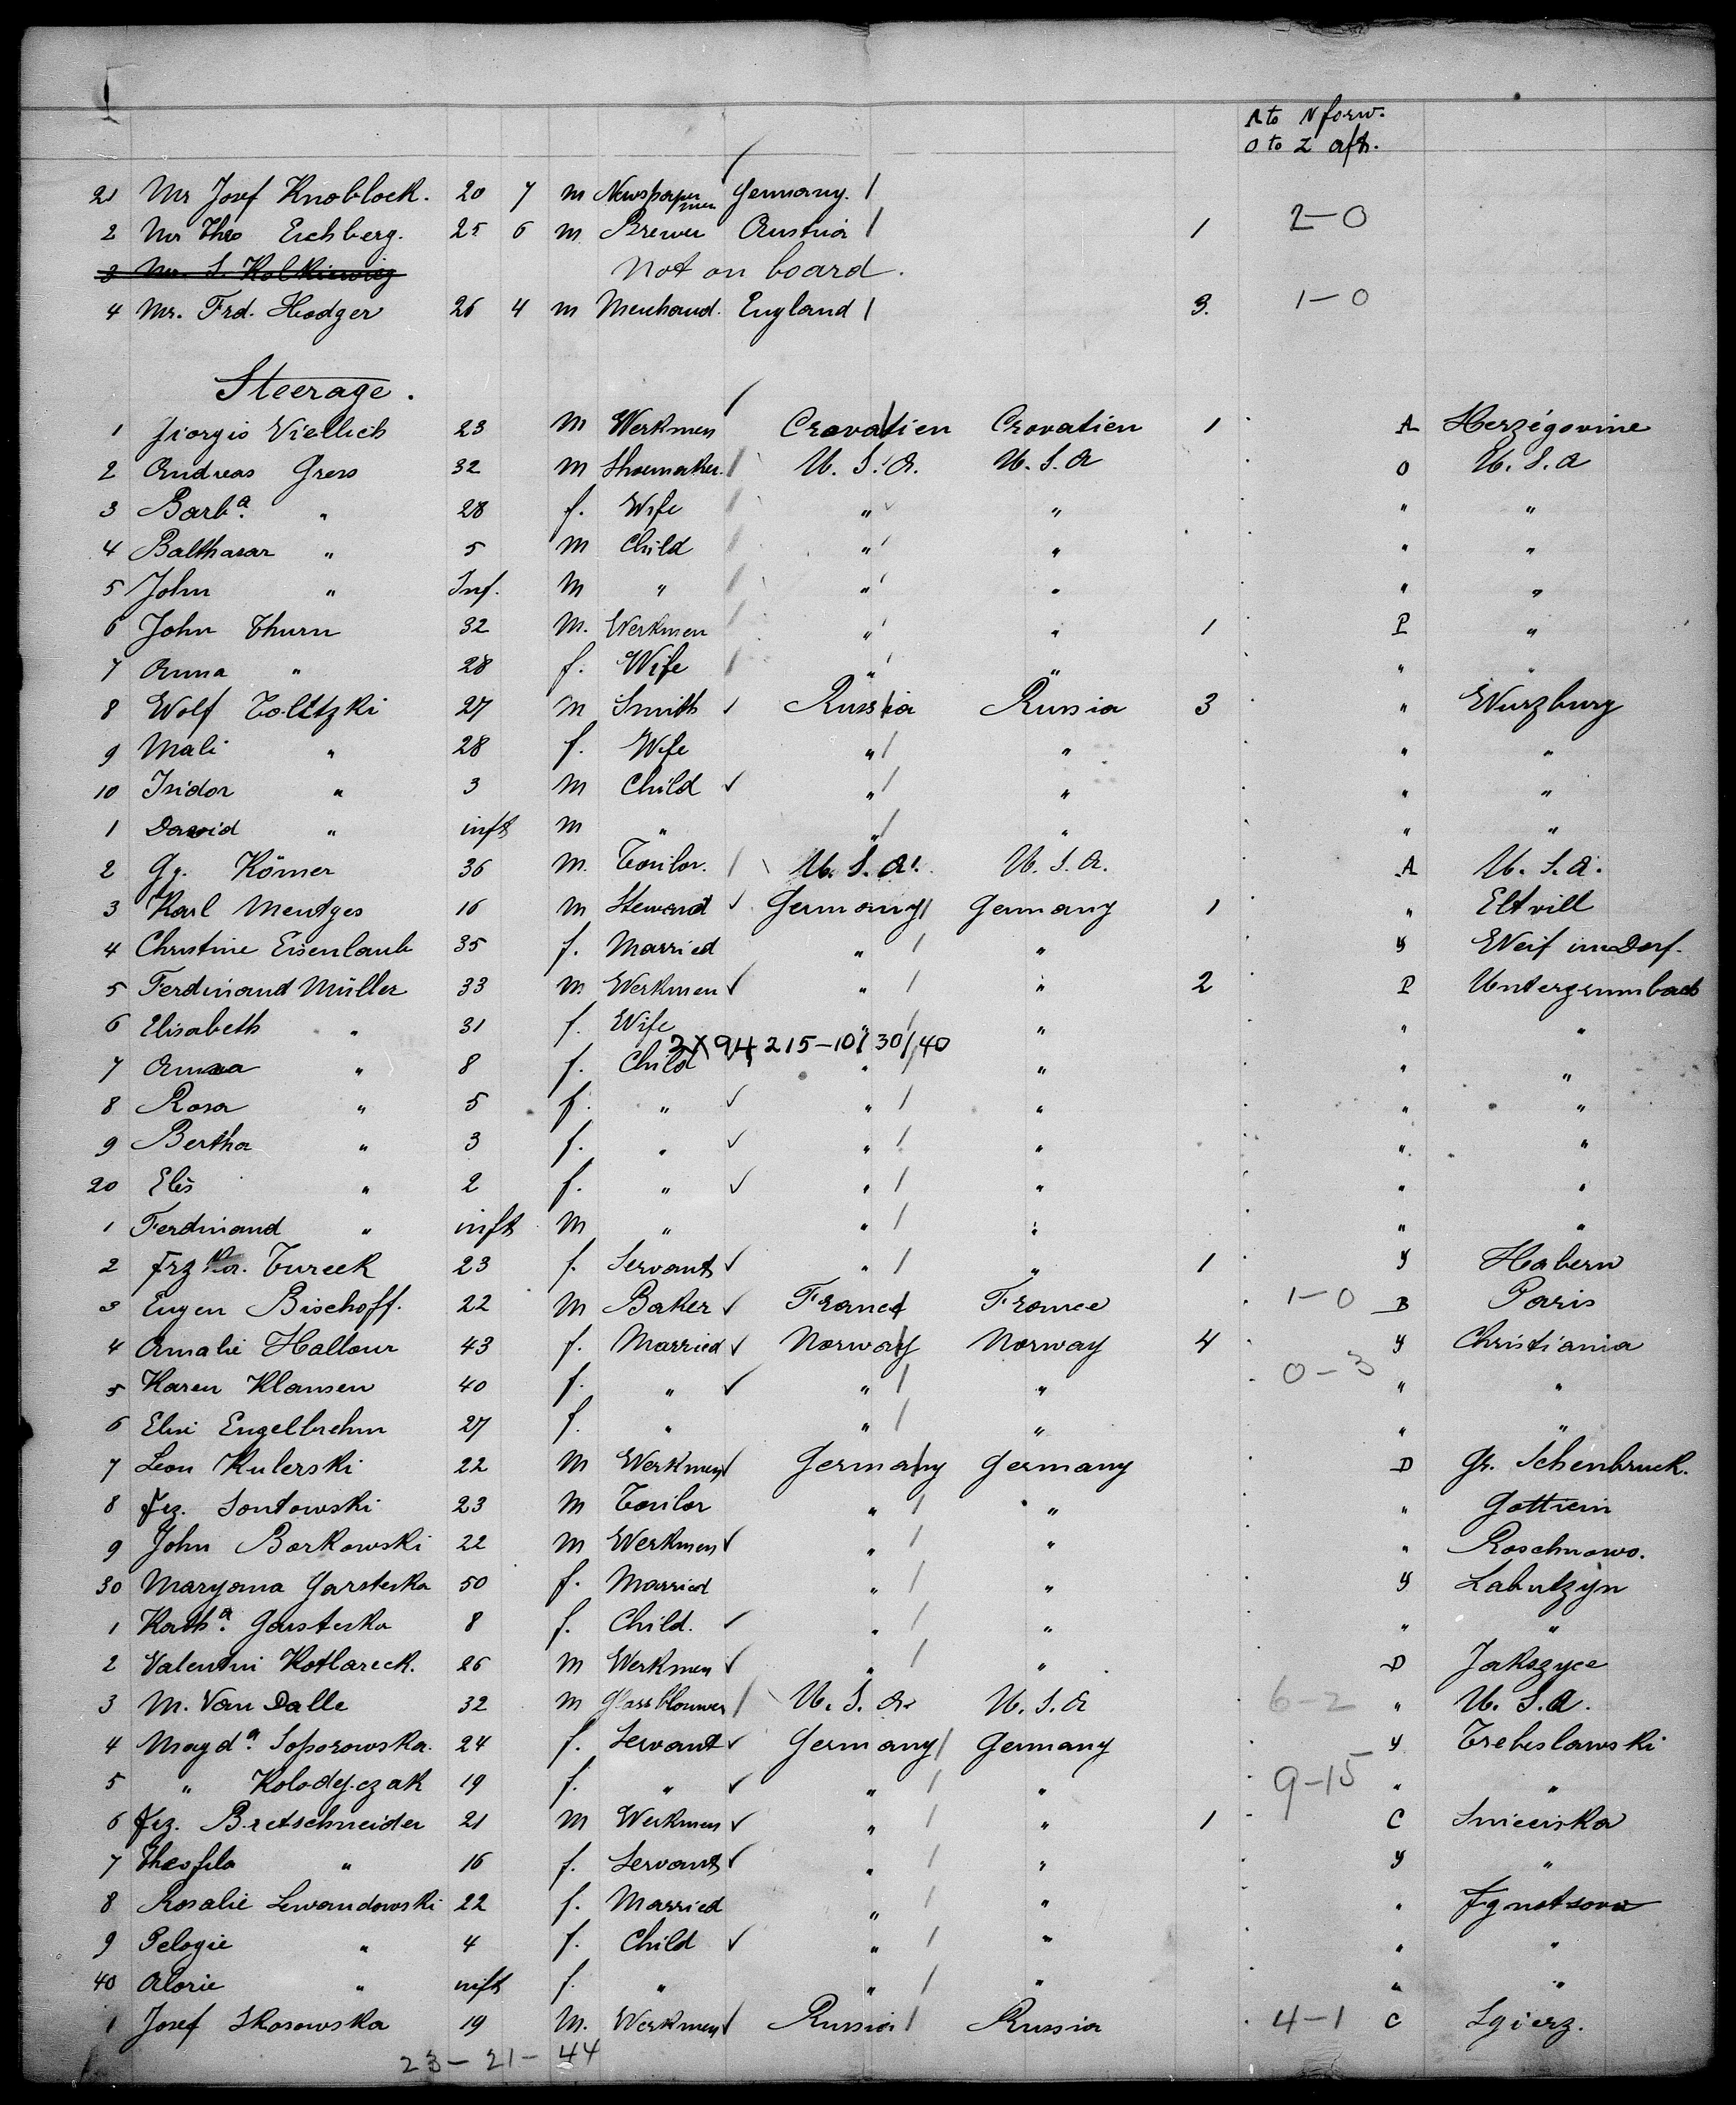 A to N forw.
O to Z aft.
21 Mr Josef Knoblock. 20 7 m Newspaper men Germany. /
2 Mr Theo Eichberg. 25 6 m Brewer Austria / 1 2-0
3 Mr. S. Kolkiewicz Not on board.
4 Mr. Frd. Hodger 26 4 m Merchand. England / 3. 1-0
Steerage.
1 Giorgio Viellich 23 M Werkmen Crovatien Crovatien 1 A Herzégovine
2 Andreas Gress 32 M Shoemaker. / U. S. A. U. S. A O U. S. A
3 Barba. " 28 f. Wife / " " " "
4 Balthasar " 5 M Child / " " " "
5 John " Inf. M " / " " " "
6 John Thurn 32 M. Werkmen / " " 1 P "
7 Anna " 28 f. Wife / " " " "
8 Wolf Tolitzki 27 M Smith ✓ Russia Russia 3 " Wurzburg
9 Mali " 28 f. Wife " / " " "
10 Isidor " 3 M Child ✓ " / " " "
1 David " inft M " " / " " "
2 Gg. Körner 36 M. Tailor. / U. S. A. U. S. A. A U. S. A.
3 Karl Mentges 16 M Steward ✓ Germany / Germany 1 " Eltvill
4 Christine Eisenlaub 35 f. Married " / " Y Weif im Dorf.
5 Ferdinand Müller 33 M Werkmen ✓ " / " 2 P Untergrumbach
6 Elisabeth " 31 f. Wife " / " " "
2X94 215-10/30/40
7 Anna " 8 f. Child " / " " "
8 Rosa " 5 f. " ✓ " / " " "
9 Bertha " 3 f. " ✓ " / " " "
20 Elis " 2 f. " ✓ " / " " "
1 Ferdinand " inft M " " / " " "
2 Frzka. Tureck 23 f. Servant ✓ " / " 1 Y Habern
3 Eugen Bischoff. 22 M Baker ✓ France France 1-0 B Paris
4 Amalie Hallour 43 f. Married ✓ Norway Norway 4 Y Christiania
5 Karen Klansen 40 f. " ✓ " / " 0-3 " "
6 Elsi Engelbrehm 27 f. " " / " " "
7 Leon Kulerski 22 M Werkmen ✓ Germany Germany D Gr. Schenbruck.
8 Frz. Sontowski 23 M Tailor " / " " Gottrein
9 John Borkowski 22 M Werkmen ✓ " / " " Roschnowo.
30 Maryana Garsteska 50 f. Married " / " Y Labutzijn
1 Katha. Garsteska 8 f. Child. ✓ " / " " "
2 Valentin Kotlareck. 26 M Werkmen ✓ " / " D Jakszyce
3 M. Van Dalle 32 M Glassblouwer / U. S. A. U. S. A 6-2 " U. S. A.
4 Magda. Soporowska. 24 f. Servant ✓ Germany / Germany Y Trebislawski
5 " Kolodejczak 19 f. " ✓ " / " 9-15 " "
6 Frz. Bretschneider 21 M Werkmen ✓ " / " 1 C Snieciska
7 Theofila " 16 f. Servant ✓ " / " Y "
8 Rosalie Lewandowski 22 f. Married " / " "
9 Pelogie " 4 f. Child ✓ " / " " "
40 Alorie " inft f. " " / " " "
1 Josef Skosowska 19 M. Werkmen ✓ Russia / Russia 4-1 C Sgierz.
23-21-44